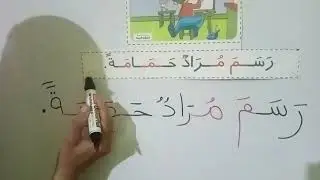 رَسَمَ مُرَادُ حَمَامَةً.
رَسَمَ مُرَادُ حَمَامَةً.